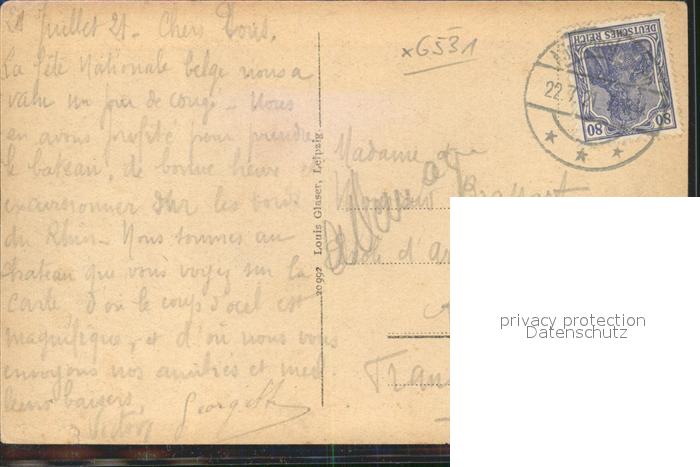 21 Juillet 21. Chers Tous.
La fête Nationale belge nous a
valu un jour de congé. Nous
en avons profité pour prendre
le bateau, de bonne heure et
excursionner sur les bords
du Rhin. Nous sommes au
chateau que vous voyez sur la
carte, d'où le coup d'œil est
magnifique, et d'où nous vous
envoyons nos amitiés et meil
leurs baisers,
Georgette
Victor
20992 Louis Glaser, Leipzig.
x6531
DEUTSCHES REICH
80 80
22.7.
Madame et
Monsieur
d'
Fran
privacy protection
Datenschutz